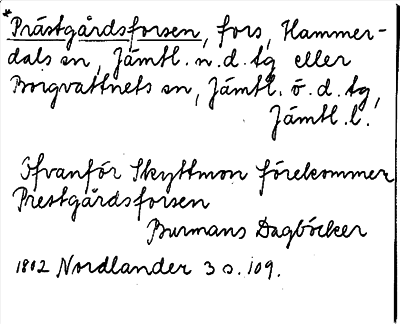 *Prästgårdsforsen, fors, Hammer-
dals sn, Jämtl. n. d. tg eller
Borgvattnets sn, Jämtl. ö. d. tg,
Jämtl. l.
Ofvanför Skyttmon förekommer
Prestgårdsforsen
Burmans Dagböcker
1802 Nordlander 3 s. 109.